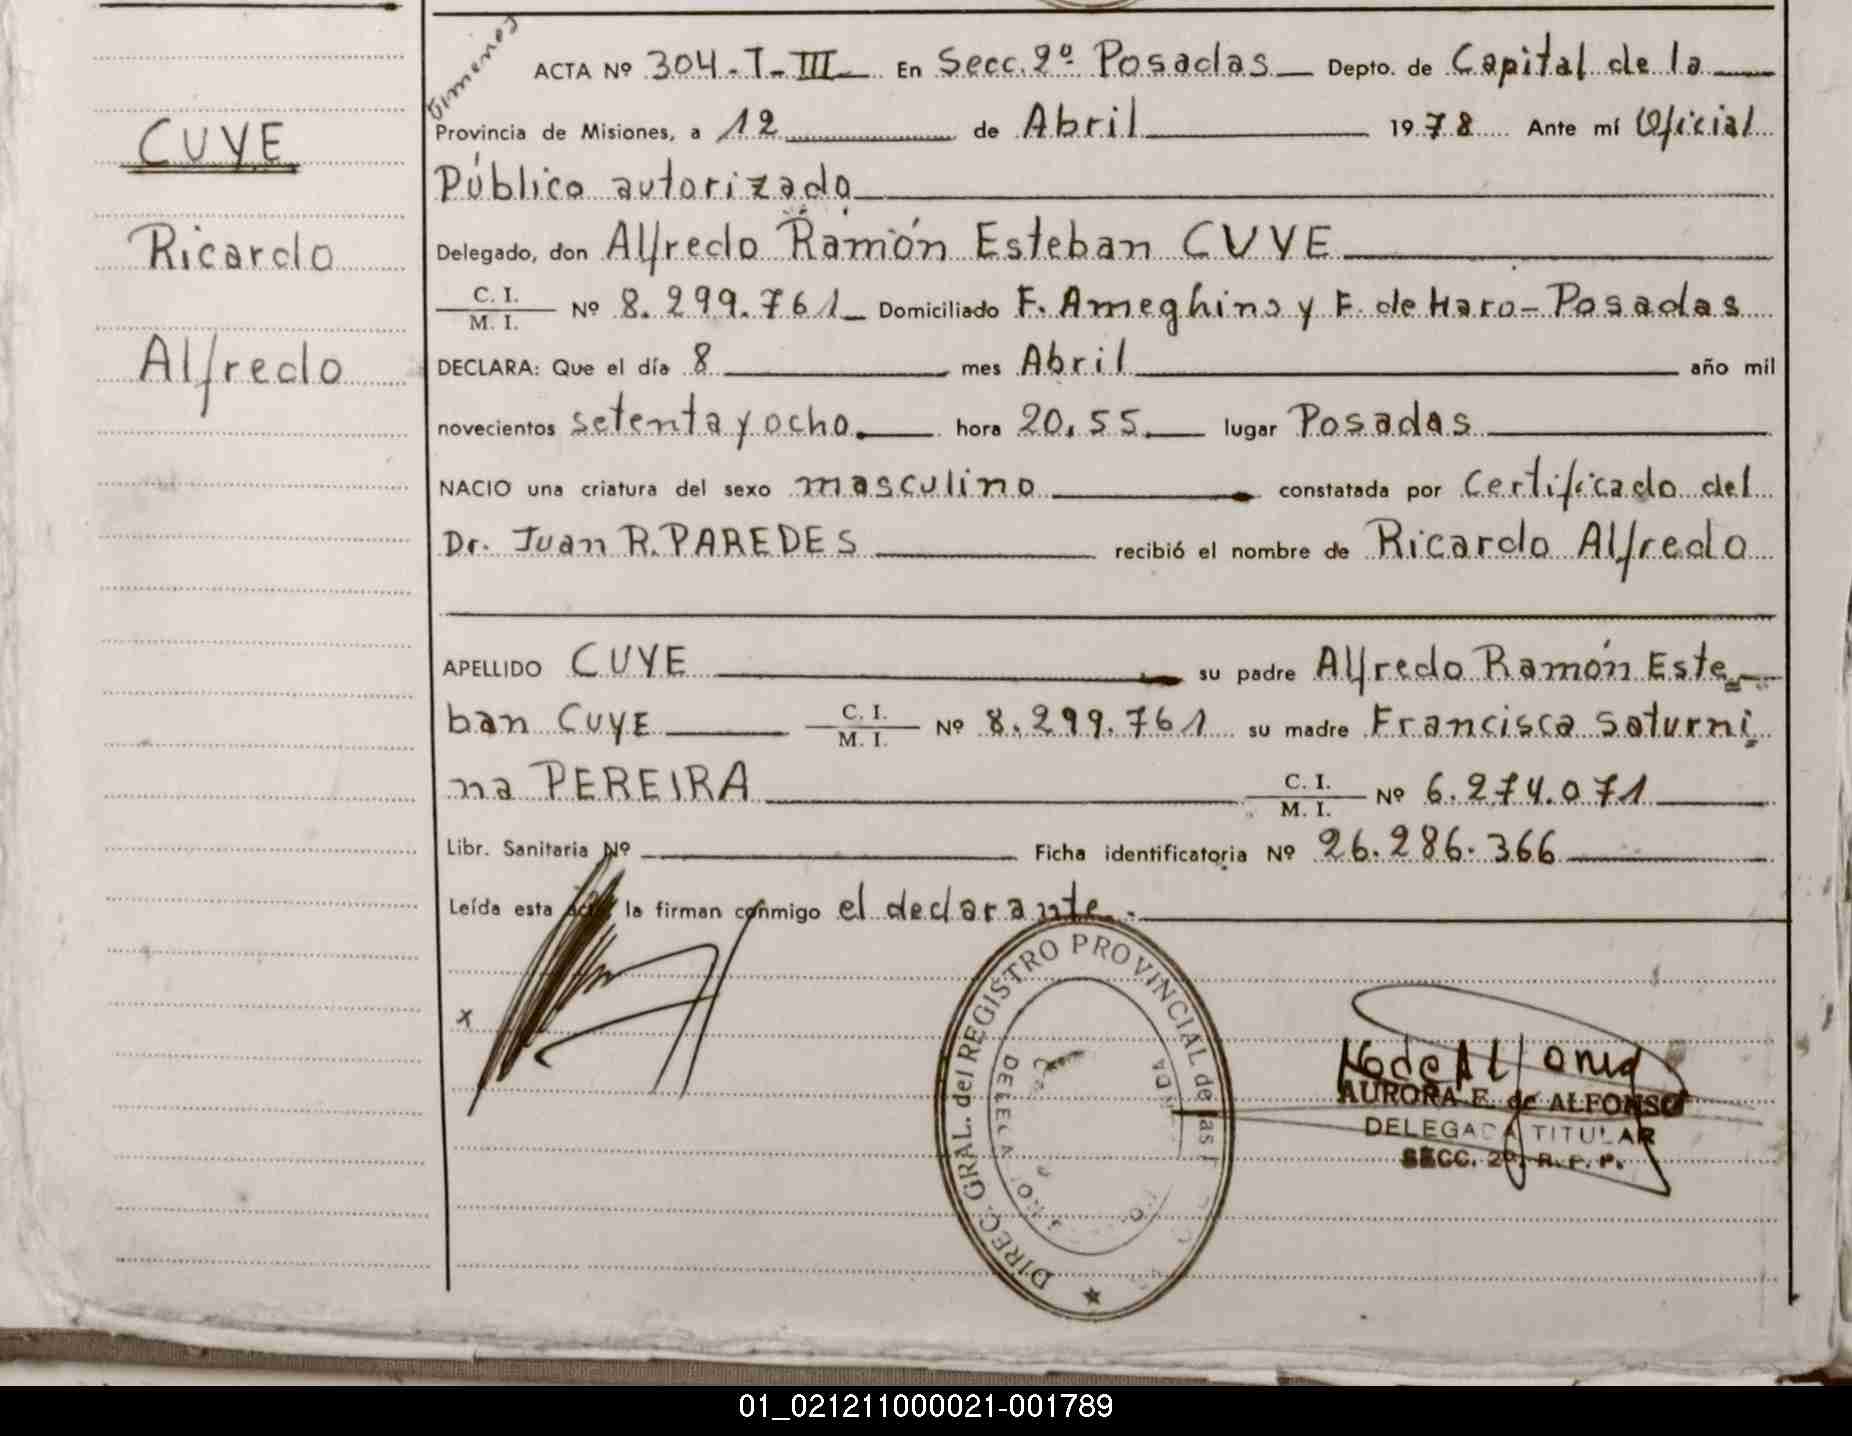 CUYE
Ricardo
Alfredo
ACTA Nº 304.T-III En Secc. 2º Posadas Depto. de Capital de la
Provincia de Misiones, a 12 de Abril 1978 Ante mí Oficial
Público autorizado
Delegado, don Alfredo Ramón Esteban CUYE
C. I.
M. I. Nº 8.299.761 Domiciliado F. Ameghino y F. de Haro - Posadas
DECLARA: Que el día 8 mes Abril año mil
novecientos setenta y ocho. hora 20.55 lugar Posadas
NACIO una criatura del sexo masculino constatada por Certificado del
Dr. Juan R. PAREDES recibió el nombre de Ricardo Alfredo
APELLIDO CUYE su padre Alfredo Ramón Este
ban CUYE C. I.
M. I. Nº 8.299.761 su madre Francisca Saturni
na PEREIRA C. I.
M. I. Nº 6.274.071
Libr. Sanitaria Nº Ficha identificatoria Nº 26.286.366
Leída esta acta la firman conmigo el declarante.-
x
DIREC. GRAL. del REGISTRO PROVINCIAL de las
AURORA E. de ALFONSO
DELEGADA TITULAR
SECC. 2º. R. P. P.
01_021211000021-001789